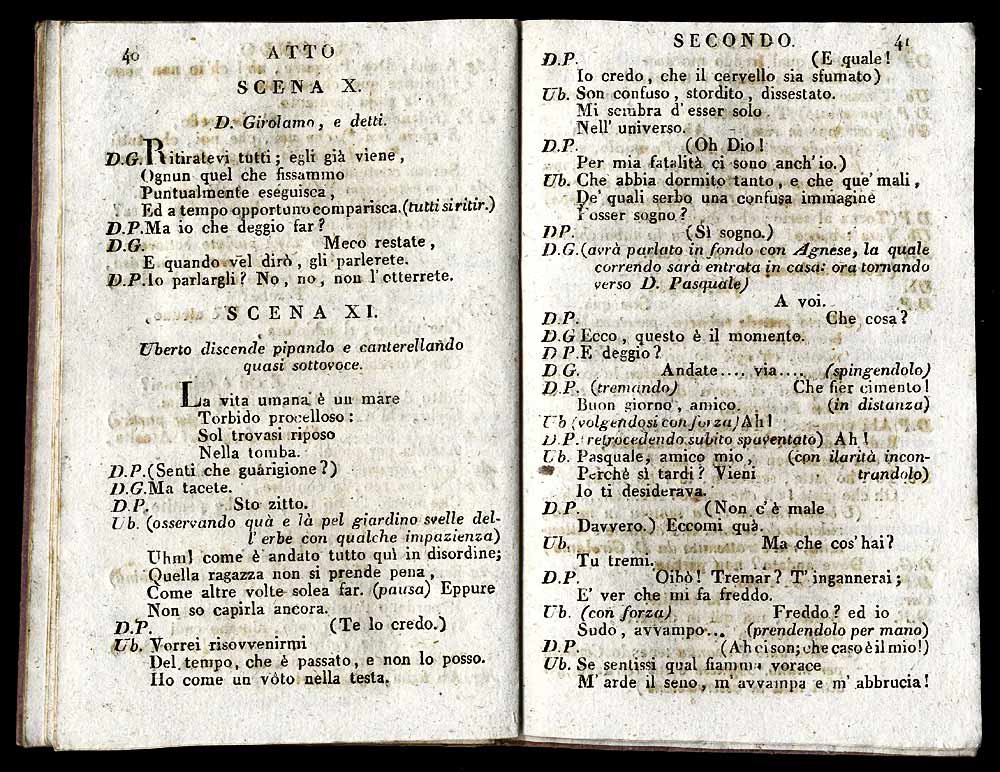 40 ATTO
SCENA X.
D. Girolamo, e detti.
D.G. Ritiratevi tutti; egli già viene,
Ognun quel che fissammo
Puntualmente eseguisca,
Ed a tempo opportuno comparisca. (tutti si ritir.)
D.P. Ma io che deggio far?
D.G. Meco restate,
E quando vel dirò, gli parlerete.
D.P. Io parlargli? No, no, non l'otterrete.
SCENA XI.
Uberto discende pipando e canterellando
quasi sottovoce.
La vita umana è un mare
Torbido procelloso:
Sol trovasi riposo
Nella tomba.
D.P. (Senti che guarigione?)
D.G. Ma tacete.
D.P. Sto zitto.
Ub. (osservando quà e là pel giardino svelle del-
l'erbe con qualche impazienza)
Uhm! come è andato tutto quì in disordine;
Quella ragazza non si prende pena,
Come altre volte solea far. (pausa) Eppure
Non so capirla ancora.
D.P. (Te lo credo.)
Ub. Vorrei risovvenirmi
Del tempo, che è passato, e non lo posso.
Ho come un vôto nella testa.
SECONDO. 41
D.P. (E quale!
Io credo, che il cervello sia sfumato)
Ub. Son confuso, stordito, dissestato.
Mi sembra d'esser solo
Nell' universo.
D.P. (Oh Dio!
Per mia fatalità ci sono anch'io.)
Ub. Che abbia dormito tanto, e che que' mali,
De' quali serbo una confusa immagine
Fosser sogno?
D.P. (Sì sogno.)
D.G. (avrà parlato in fondo con Agnese, la quale
correndo sarà entrata in casa: ora tornando
verso D. Pasquale)
A voi.
D.P. Che cosa?
D.G Ecco, questo è il momento.
D P. E deggio?
D G. Andate.... via.... (spingendolo)
D.P. (tremando) Che fier cimento!
Buon giorno, amico. (in distanza)
Ub (volgendosi con forza) Ah!
D.P. (retrocedendo subito spaventato) Ah!
Ub. Pasquale, amico mio, (con ilarità incon-
Perchè sì tardi? Vieni trandolo)
Io ti desiderava.
D.P. (Non c'è male
Davvero.) Eccomi quà.
Ub. Ma che cos'hai?
Tu tremi.
D.P. Oibò! Tremar? T'ingannerai;
E' ver che mi fa freddo.
Ub. (con forza) Freddo? ed io
Sudo, avvampo... (prendendolo per mano)
D.P. (Ah ci son; che caso è il mio!)
Ub. Se sentissi qual fiamma vorace
M'arde il seno, m'avvampa e m'abbrucia!